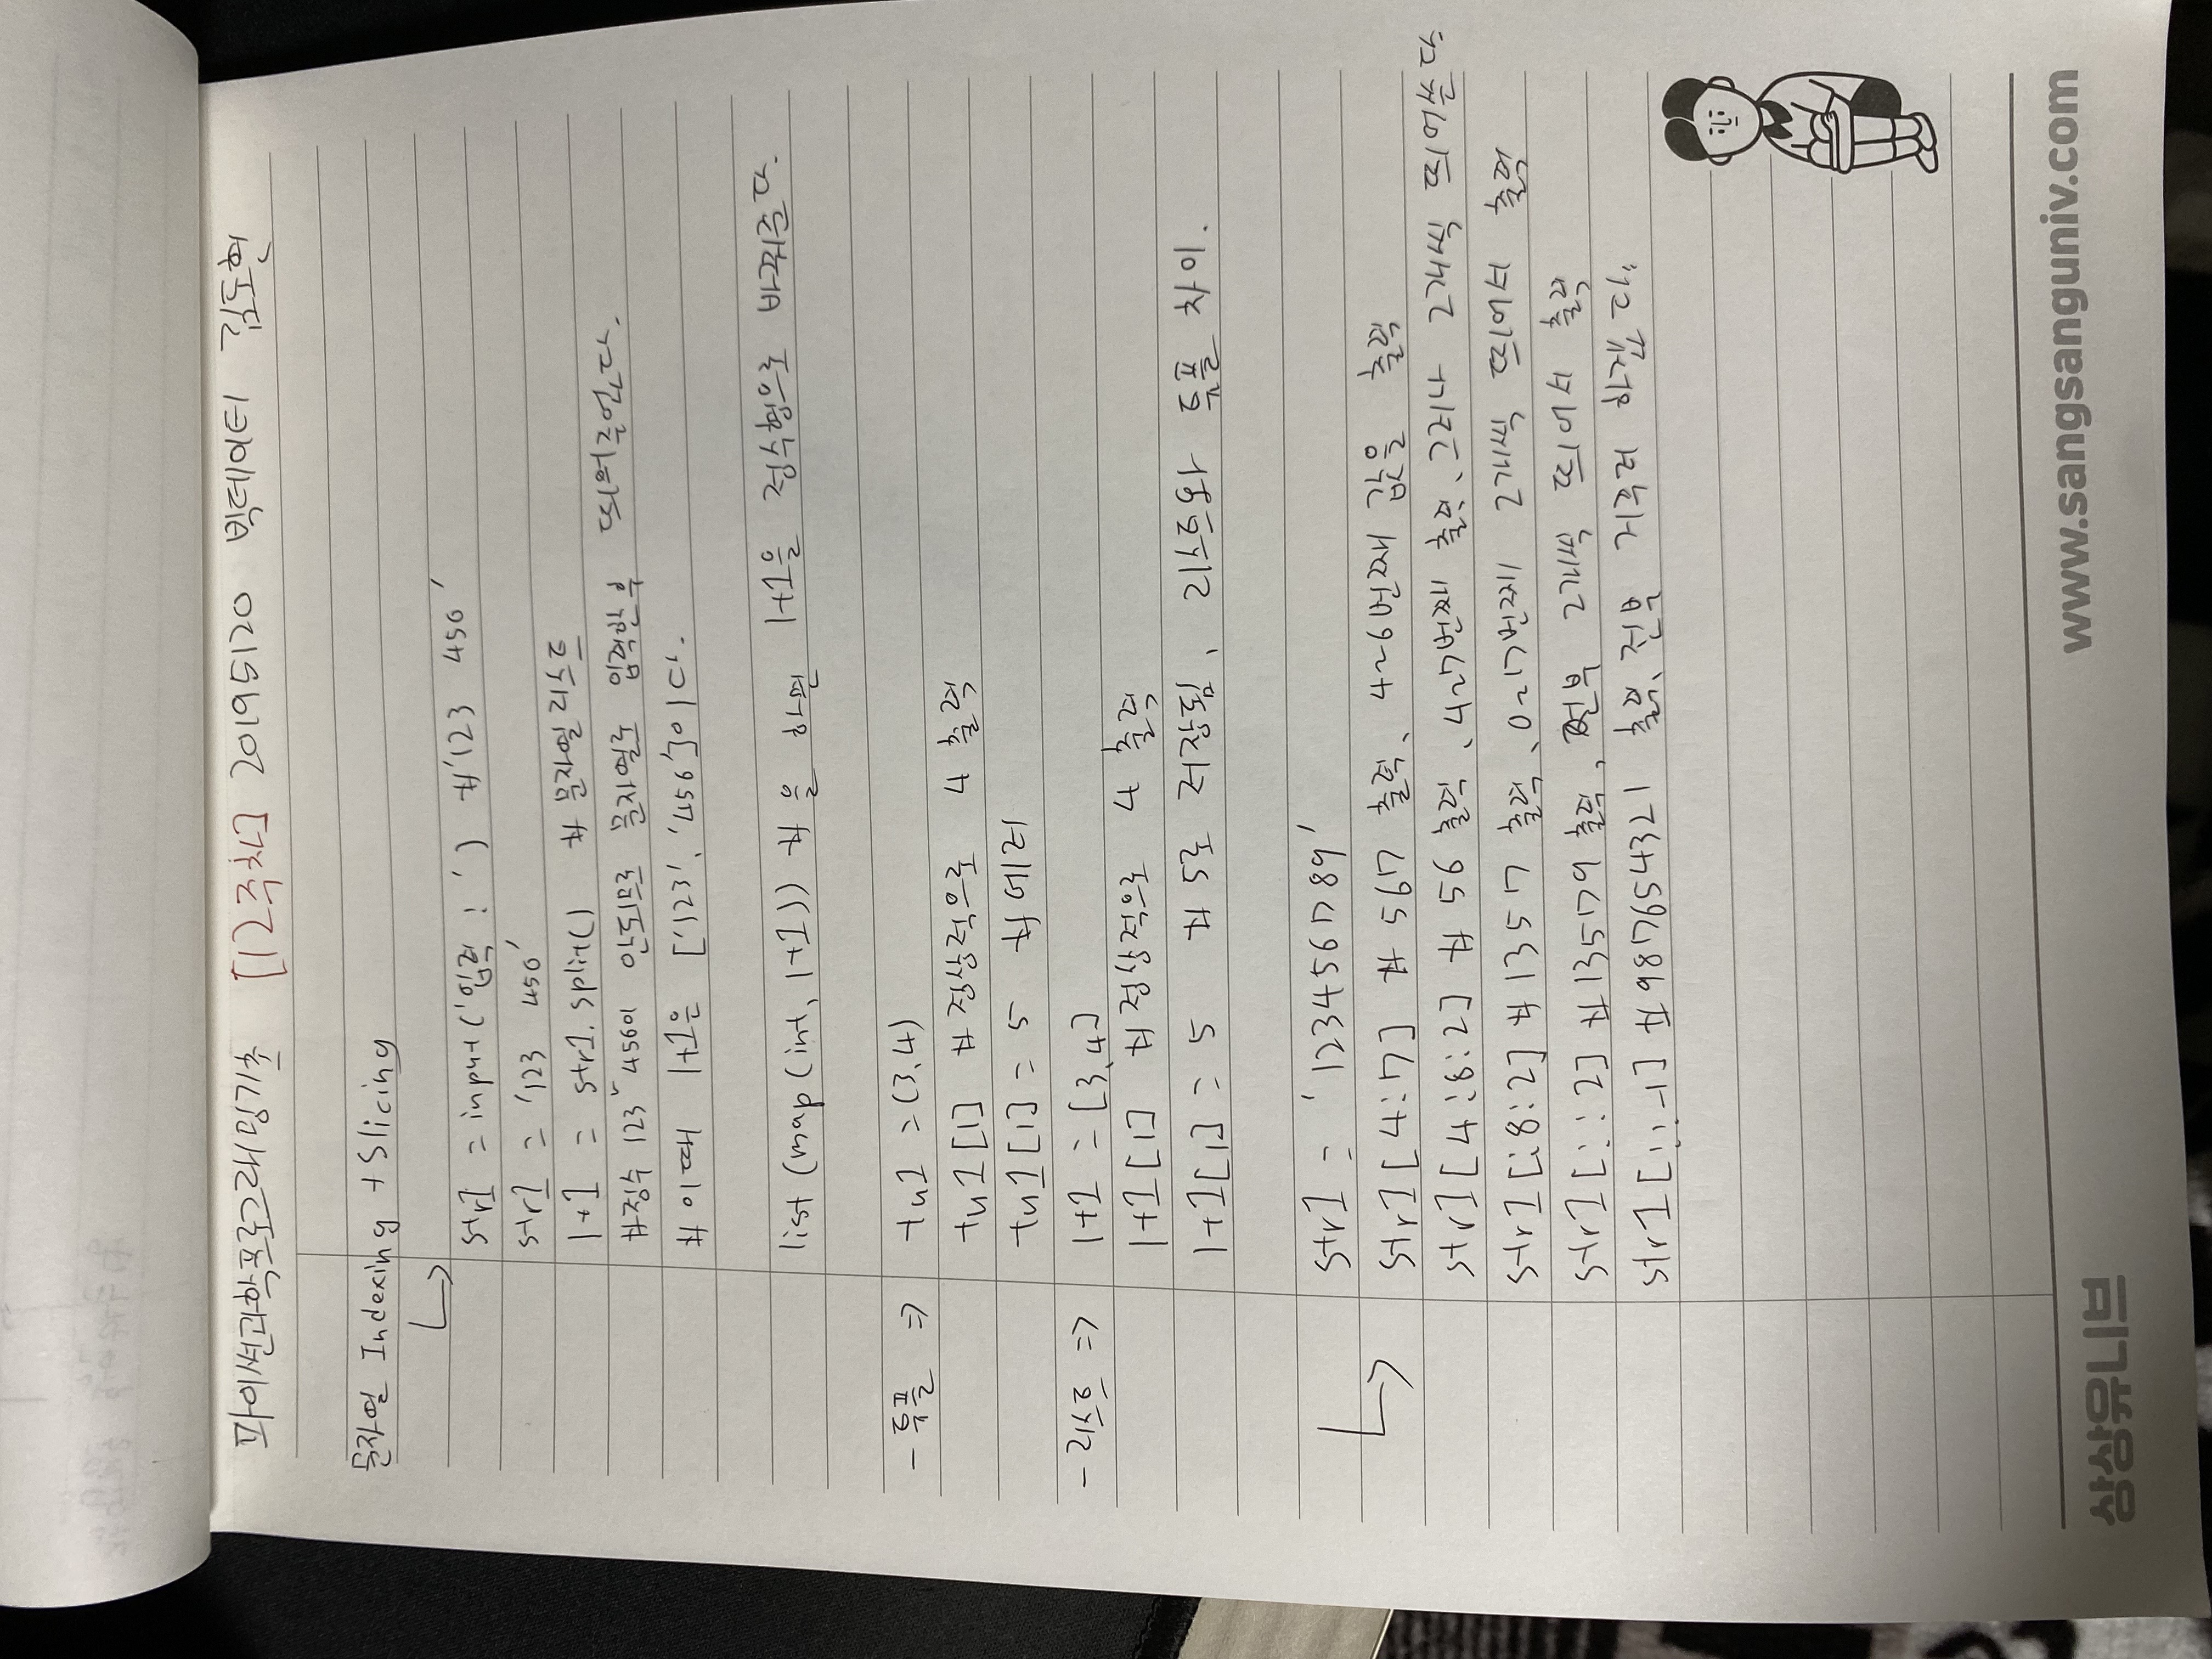 파이썬과학프로그래밍기초 [12주차] 20195120 빅데이터 김도현
문자열 Indexing + Slicing
str1 = input('입력 : ') #'123 456'
str1 = '123 456'
lt1 = str1.split() # 문자열 리스트
#정수 123ˇ456이 안되므로 문자열로 입력한후 띄어주었다.
# 이때 lt1은 ['123', '456']이다.
list (map (int, lt1)) # 을 하면 lt1을 정수형으로 바꿔준다.
- 튜플 => tu1 = (3,4)
tu1[1] #정상적으로 4 출력
tu1[1] = 5 #에러
- 리스트 => lt1 = [3,4]
lt1[1] #정상적으로 4 출력
lt1[1] = 5 # 5로 저장됨, 리스트와 튜플 차이.
str1 = '123456789'
str1[4:7] # 567 출력, 4~6번째 값을 출력
str1[4:8:2] # 56 출력, 4~7번째 출력, 그러나 2개씩 띄어쓴다.
str1[:8:2] # 1357 출력, 0~7번째 2개씩 띄어서 출력
str1[::2] # 13579 출력, 전부 2개씩 띄어서 출력
str1[::-1] # 987654321 출력, 전부 거꾸러 하겠다.
www.sangsanguniv.com
상상유니브